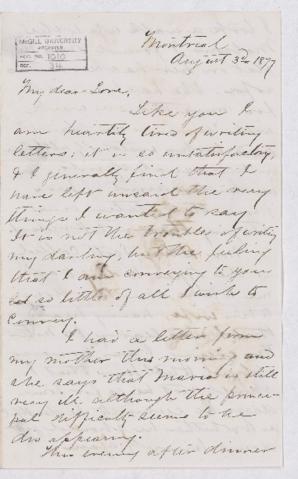 McGILL UNIVERSITY
ARCHIVES
ACC. NO. 1010
REF. 34
Montreal
August 3rd 1877
My dear Love,
Like you I
am heartily tired of writing
letters; it is so unsatisfactory,
& I generally find that I
have left unsaid the very
things I wanted to say.
It is not the trouble of writing
my darling, but the feeling
that I am conveying to you
so little of all I wish to
convey.
I had a letter from
my mother this morning and
she says that Maria is still
very ill although the princi-
pal difficulty seems to be
disappearing.
This evening after dinner